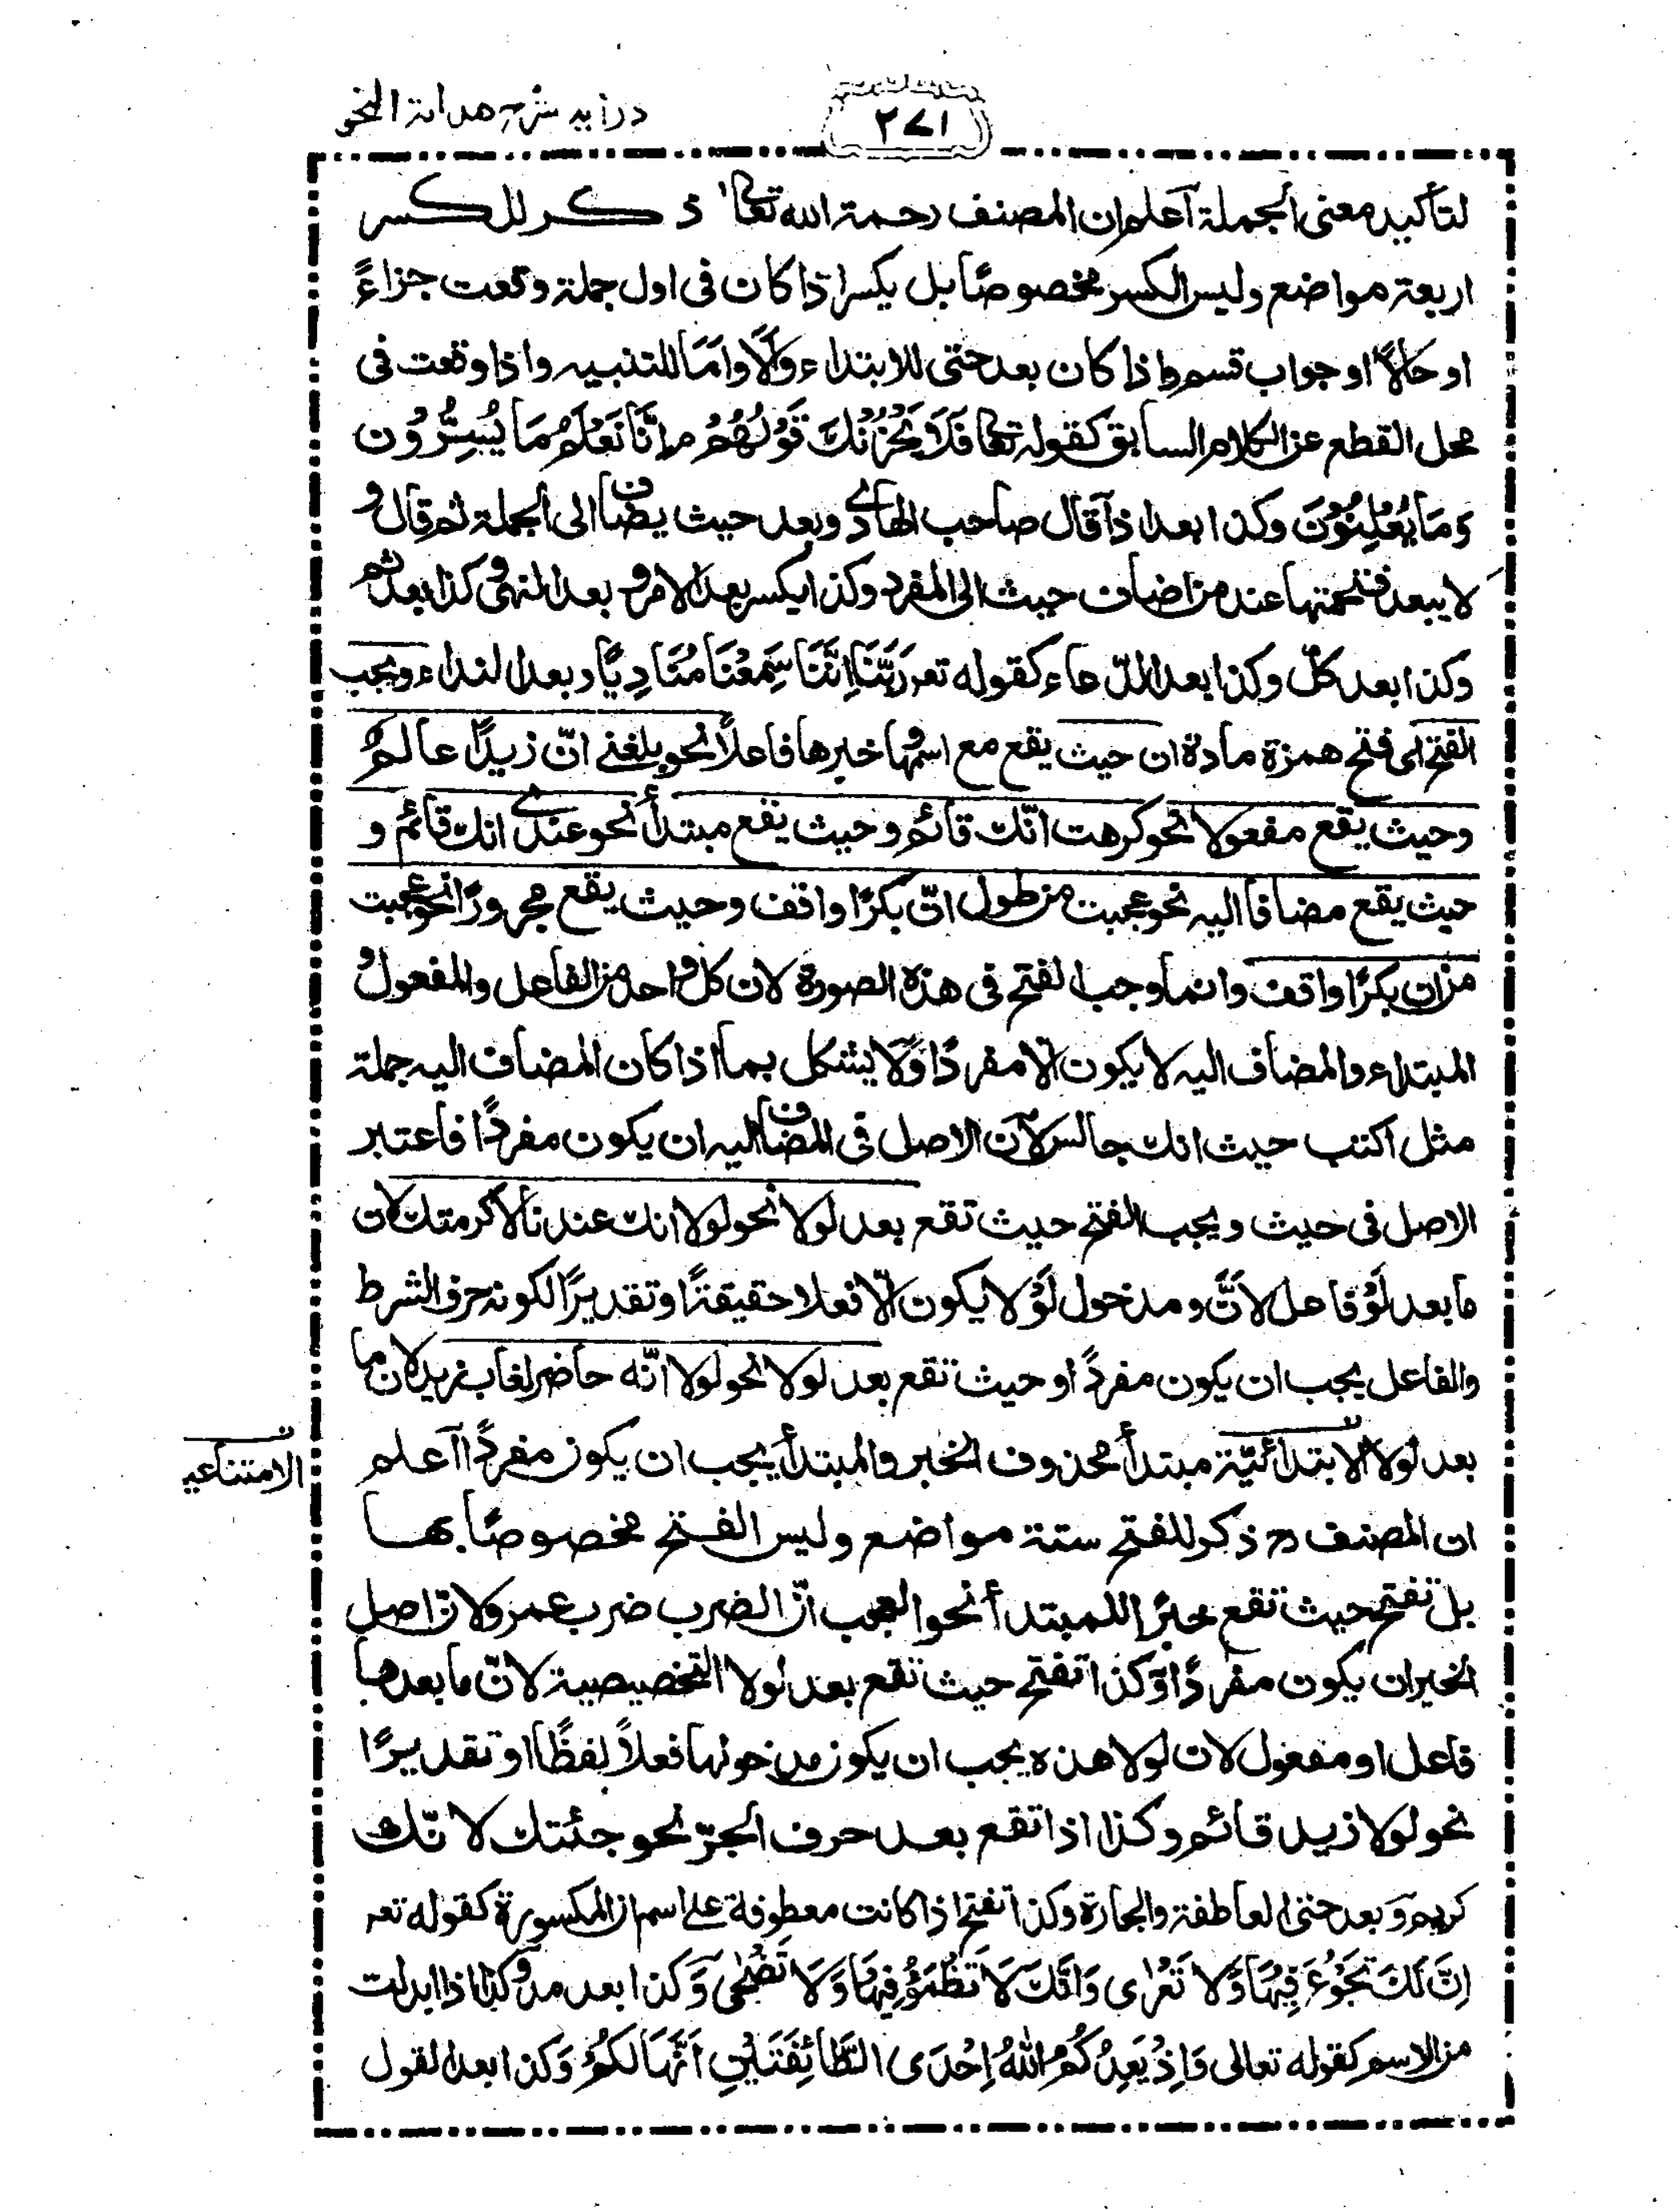 ٢٧١
درايه شرح هداية النحو
لتأكيد معنى الجملة آعلم ان المصنف رحمة الله تعالى ذكر للكسر
اربعة مواضع وليس الكسر مخصوصًا بل يكسر اذا كان فى اول جملة وقعت جزاءً
او حالًا او جواب قسم واذا كان بعد حتى للابتداء وَالَا واَمَا للتنبيه واذا وقعت فى
محل القطع عن الكلام السابق كقوله تعالى فَلَا يَحْزُنْكَ قَوْلُهُمْ م اِنَّا نَعْلَمُ مَا يُسِرُّوْن
وَمَا يُعْلِنُوْنَ وكذا بعد اذ آقال صاحب الهادى وبعد حيث يضاف الى الجملة ثم قال و
لا يبعد فتحتها عند من اضاف حيث الى المفرد وكذا يكسر بعد الامر و بعد النهى و كذا بعد ثم
وكذا بعد كلّ وكذا بعد الدّعاء كقوله تعـ رَبَّنَا اِنَّنَا سَمِعْنَا مُنَادِيًا و بعد النداء ويجب
الفتح اى فتح همزة مادة ان حيث يقع مع اسمها و خبرها فاعلًا نحو بلغنى انّ زيدًا عالمٌ
وحيث يقع مفعولا نحو كرهت انّك قائم وحيث يقع مبتدأ نحو عندى انك قائم و
حيث يقع مضافا اليه نحو عجبت من طول انّ بكرًا واقف وحيث يقع مجرورًا نحو عجبت
من ان بكرًا واقف وانما وجب الفتح فى هذه الصورة لان كل واحد من الفاعل والمفعول و
المبتداء والمضاف اليه لا يكون الا مفردًا وَلا يشكل بما اذا كان المضاف اليه جملة
مثل اكتب حيث انك جالس لآن الاصل فى المضاف اليه ان يكون مفردًا فاعتبر
الاصل فى حيث ويجب الفتح حيث تقع بعد لولا نحو لولا انك عندنا لاكرمتك لان
ما بعد لَوْ فاعل لاَنَّ ومدخول لَوْ لا يكون الّا فعلا حقيقةً او تقديرًا لكونه حرف الشرط
والفاعل يجب ان يكون مفردًا وحيث تقع بعد لولا نحو لولا انّه حاضر لغاب زيد لان ما
بعد لولا الابتدائيّة مبتدأ محذوف الخبر والمبتدأ يجب ان يكون مفردًا آعلم
الامتناعيه
ان المصنف رح ذكر للفتح ستة مواضع وليس الفتح مخصوصًا بها
بل تفتح حيث تقع خبرًا للمبتدأ نحو العجب انّ الضرب ضرب عمرو لانّ اصل
الخبر ان يكون مفردًا وَكذا تفتح حيث تقع بعد لولا التخصيصية لانّ ما بعدها
فاعل او مفعول لان لولا هذه يجب ان يكون مدخولها فعلًا لفظًا او تقديرًا
نحو لولا زيد قائم وكذا اذا تقع بعد حرف الجرّ نحو جئتك لانّك
كريم وَ بعد حتى العاطفة والجارة وكذا تفتح اذا كانت معطوفة على اسم ان المكسورة كقوله تعـ
اِنَّ لَكَ تَجُوْعَ فِيْهَا وَلَا تَعْرٰى وَاَنَّكَ لَا تَظْمَؤُ فِيْهَا وَلَا تَضْحٰى وَكذا بعد مذ و كذا اذا ابدلت
من الاسم كقوله تعالى وَاِذْ يَعِدُكُمُ اللهُ اِحْدَى الطَّائِفَتَيْنِ اَنَّهَا لَكُمْ وَكذا بعد القول